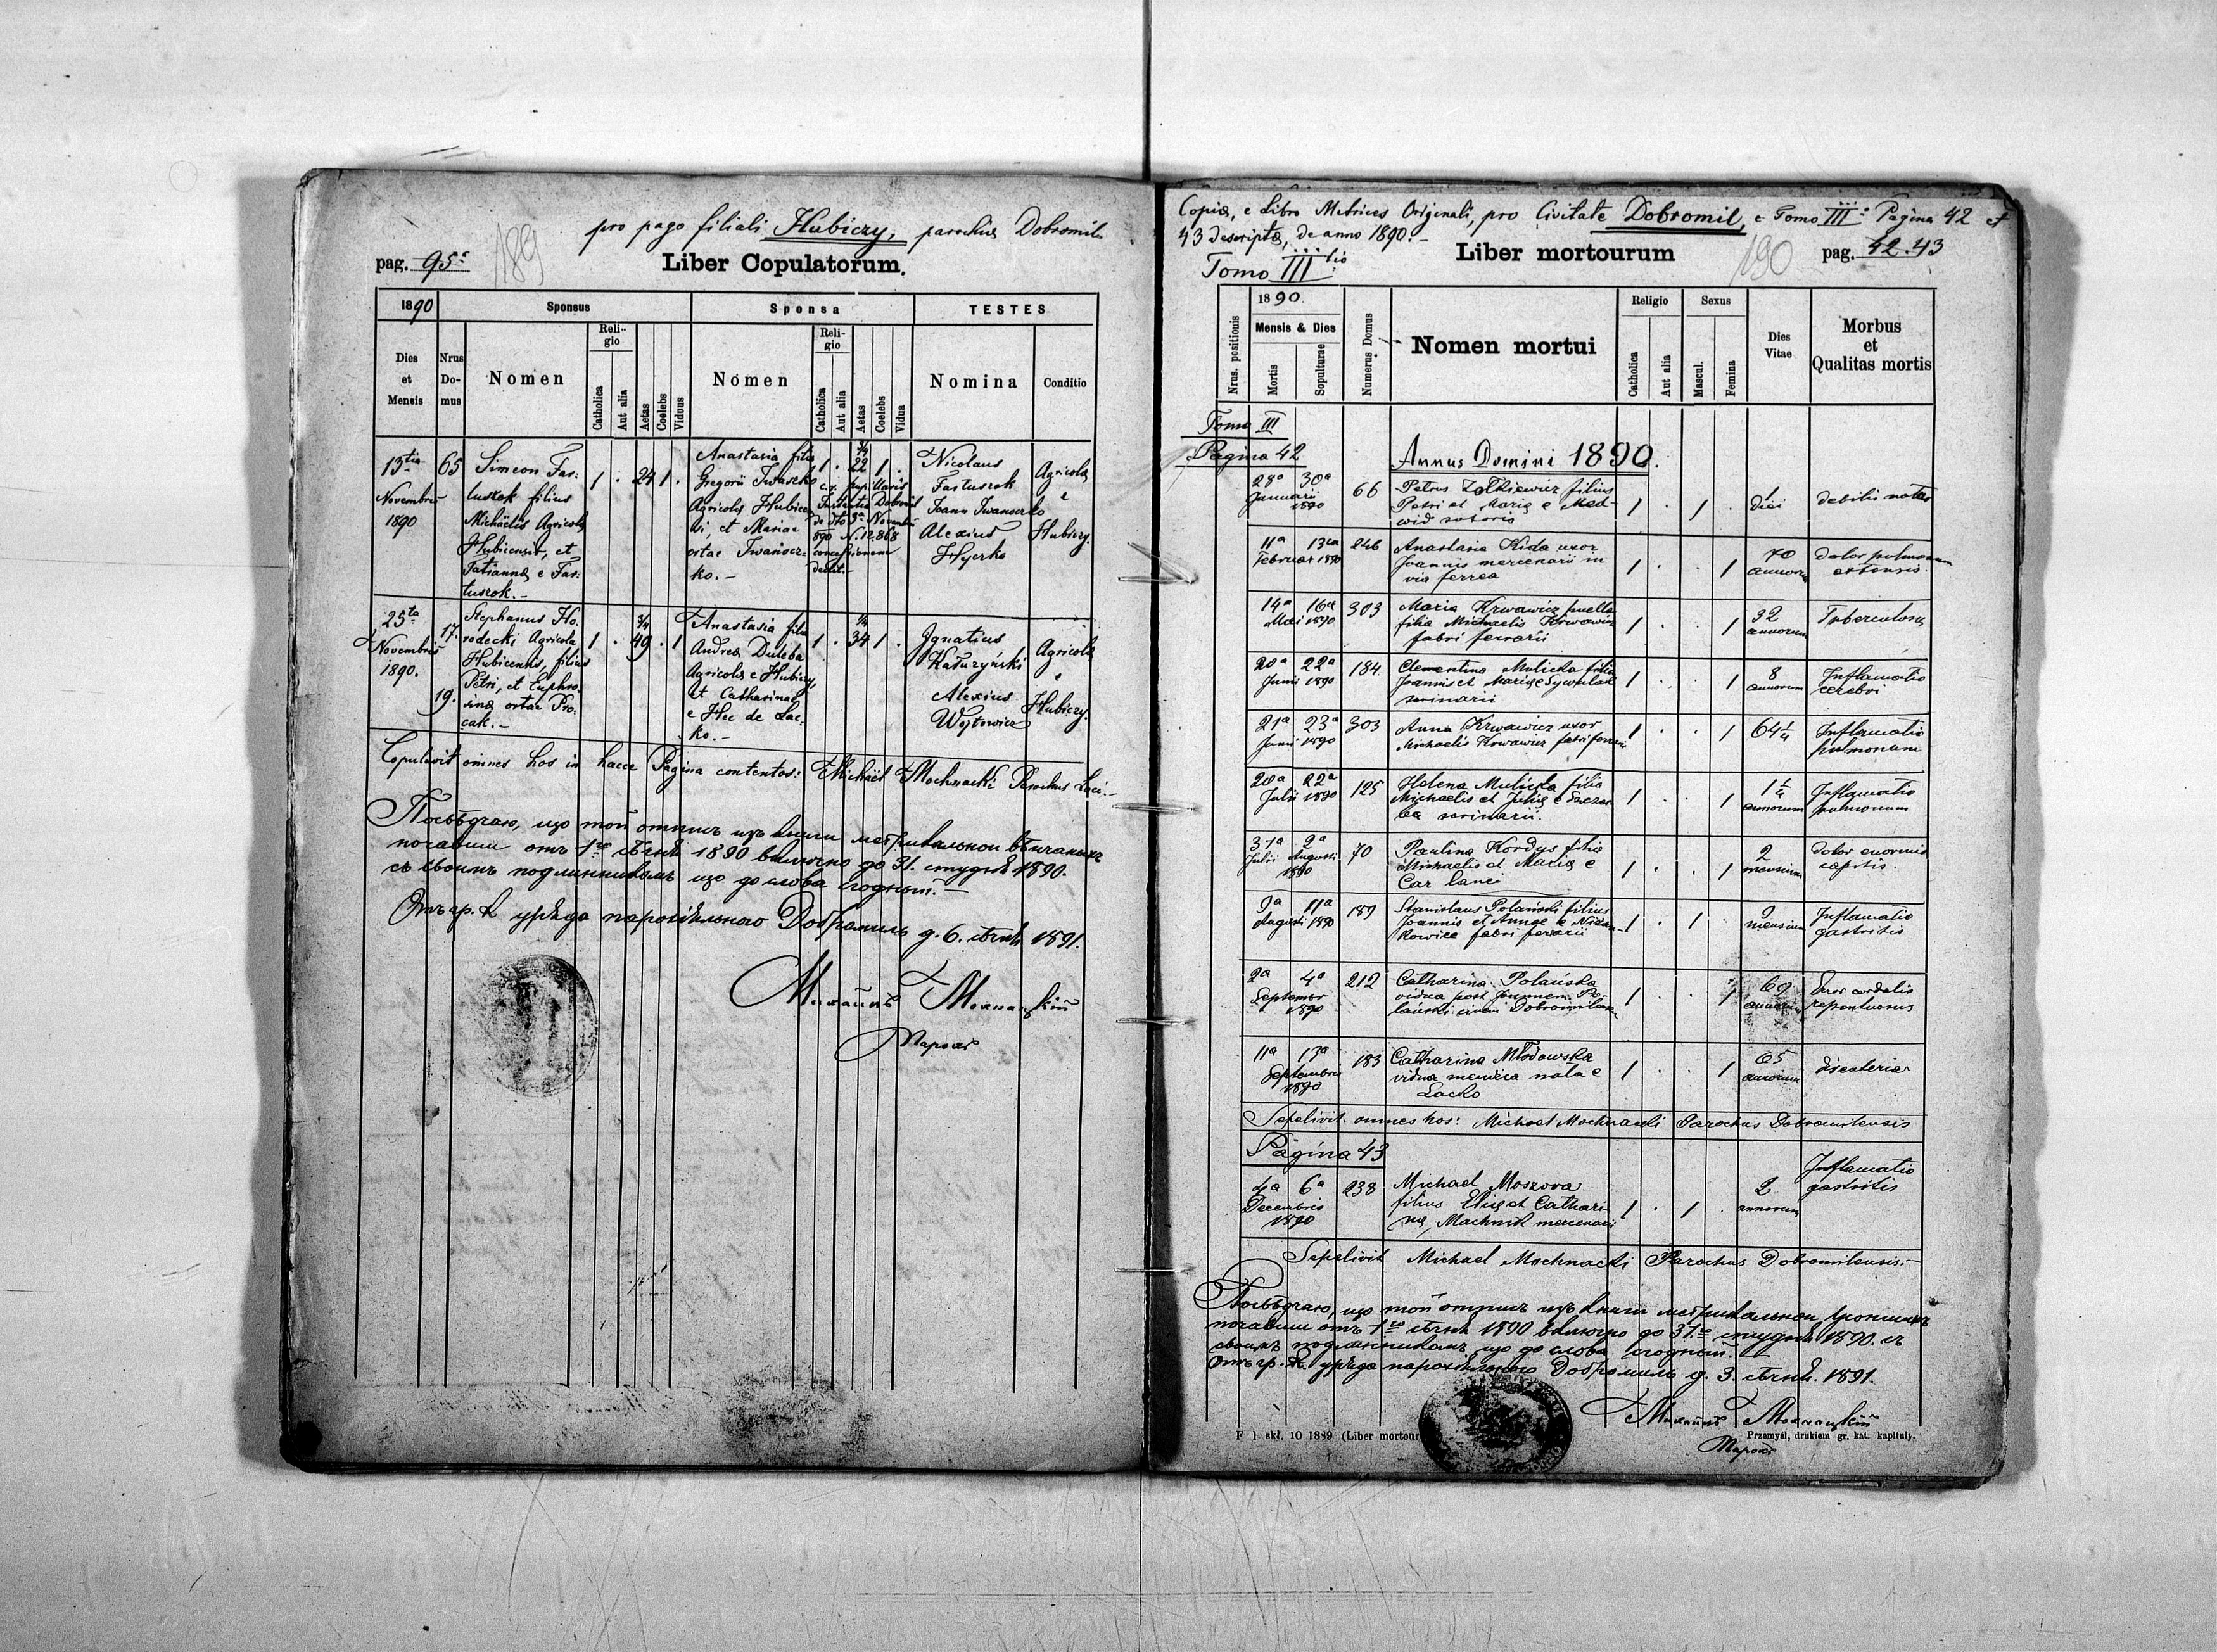 pro pago filiali Hubiczy, parochia Dobromil
pag. 95. 189 Liber Copulatorum.
1890 Sponsus Sponsa TESTES
Dies et Mensis
Nrus Domus
Nomen
Religio
Catholica
Aut alia
Aetas
Coelebs
Viduus
Nomen
Religio
Catholica
Aut alia
Aetas
Coelebs
Vidua
Nomina
Conditio
13tia
Novembris
1890
65
Simeon Fas-
tuszok filius
Michaëlis Agricola
Hubicensis, et
Tatianna e Fas-
tuszok.-
1 . 24 1 .
Anastasia filia
Gregorii Iwaseczko
Agricola Hubicen-
si, et Mariae
ortae Iwanocz-
ko.-
1 . 22 1 .
de dto 3a Novembri
890 N. 12.868
concessionem
dedit.-
Nicolaus
Fastuszok
Joann Iwanoczko
Alexius
Hyczko
Agricola
e
Hubiczy.
25ta
Novembris
1890.
17.
19.
Stephanus Ho-
rodecki Agricola
Hubicensis, filius
Petri, et Euphro-
sina ortae Pro-
cak.-
1 . 49 . 1
Anastasia filia
Andrea Duleba
Agricola e Hubiczy,
et Catharinae
e Hec de Lac-
ko.-
1 . 34 1 .
Ignatius
Kałużyński
Alexius
Wojtowicz
Agricola
e
Hubiczy.
Copulavit omnes hos in hacce Pagina contentos: Michaël Mochnacki Parochus Loci.-
Посвѣдчаю, що той отписъ изъ книги метрикальнои вѣнчаныхъ
почавши отъ 1го сѣчня 1890 включно до 31. студня 1890.
съ своимъ подлинникомъ що до слова згодный.-
Отъ гр. к. уряда парохіяльного Добромиль д. 6. сѣчня 1891.
Михаилъ Мохнацкій
Парохъ
Copia, e Libro Metrices Originali, pro Civitate Dobromil, e Tomo III: Pagina 42 et
43 descripta, de anno 1890.-
Tomo III tio
Liber mortourum 190 pag. 42.43
Nrus. positionis
1890.
Mensis & Dies
Mortis
Sepulturae
Numerus Domus
Nomen mortui
Religio
Catholica
Aut alia
Sexus
Mascul.
Femina
Dies Vitae
Morbus
et
Qualitas mortis
Tomo III
Pagina 42
Annus Domini 1890.
28a 30a
Januarii
1890
66
Petrus Zołkiewicz filius
Petri et Maria e Med-
wid sutoris
1 . 1 .
1
diei
debilis natus
11a 13a
Februar 1890
246
Anastasia Kida uxor
Joannis mercenarii in
via ferrea
1 . . 1
70
annorum
dolor pulmonum
extensis
14a 16a
Mai 1890
303
Maria Krwawicz puella
filia Michaelis Krwawicz
fabri ferrarii
1 . . 1
32
annorum
Tuberculosa
20a 22a
Junii 1890
184
Clementina Mulicka filia
Joannis et Maria e Sywulak
1 . . 1
8
annorum
Inflamatio
cerebri
21a 23a
Junii 1890
303
Anna Krwawicz uxor
Michaelis Krwawicz fabri ferrarii
1 . . 1
64¼
Inflamatio
pulmonum
20a 22a
Julii 1890
125
Helena Mulicka filia
Michaelis et Julia e Szczer-
ba
1 . . 1
1¼
annorum
Inflamatio
pulmonum
31a 2a
Julii Augusti
1890
70
Paulina Kordys filia
Michaelis et Maria e
Car lanei
1 . . 1
2
mensium
dolor enormis
capitis
9a 11a
Augusti 1890
189
Stanislaus Polański filius
Joannis et Annae e Nizan-
kowice fabri ferrarii
1 . 1 .
9
mensium
Inflamatio
gastritis
2a 4a
Septembr
1890
212
Catharina Polańska
vidua post Joannem Po-
lański civem Dobromilens
1 . . 1
69
annorum
repentuosus
11a 13a
Septembris
1890
183
Catharina Młodowska
vidua mendica nata e
Lacko
1 . . 1
65
annorum
disenteria
Sepelivit omnes hos: Michael Mochnacki Parochus Dobromilensis
Pagina 43
4a 6a
Decembris
1890
238
Michael Moszora
filius Elia et Cathari-
na, Machnik mercenarii
1 . 1 .
2
annorum
Inflamatio
gastritis
Sepelivit Michael Mochnacki Parochus Dobromilensis.-
Посвѣдчаю, що той отписъ изъ книги метрикальнои умершихъ
почавши отъ 1го сѣчня 1890 включно до 31го студня 1890. съ
своимъ подлинникомъ що до слова згодный.
Отъ гр. к. уряда парохіяльного Добромиль д. 3. сѣчня. 1891.
Михаилъ Мохнацкій
Парохъ
F 1 skł. 10 1889 (Liber mortour
Przemyśl, drukiem gr. kat. kapituły.